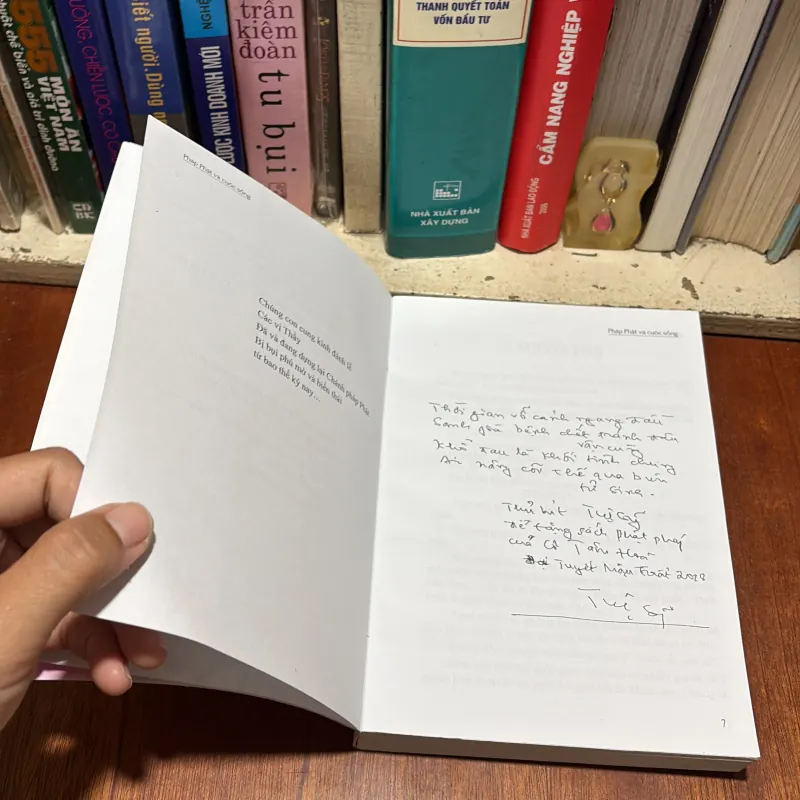 555 MÓN ĂN VIỆT NAM
trần kiêm đoàn
tu bụi
THANH QUYẾT TOÁN
VỐN ĐẦU TƯ
NHÀ XUẤT BẢN
XÂY DỰNG
CẨM NANG NGHIỆP
NHÀ XUẤT BẢN LAO ĐỘNG
Pháp Phật và cuộc sống
Chúng con cung kính đảnh lễ
Các vị Thầy
Đã và đang dựng lại Chánh pháp Phật
Bị bụi phủ mờ và biến thái
từ bao thế kỷ nay...
Pháp Phật và cuộc sống
Thời gian vỗ cánh ngang đầu
Sanh già bệnh chết tránh đâu
vận cùng
Khổ đau là khối tình chung
Ai nâng cõi thế qua bùn
tử sinh.
Thủ bút Tuệ Sỹ
Đề tặng sách phật pháp
của Cô Tâm
Tuyết Mậu Tuất 2018
Tuệ Sỹ
7